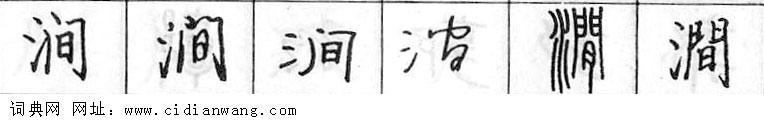 涧 涧 涧 涧 澗 澗
词典网 网址：www.cidianwang.com